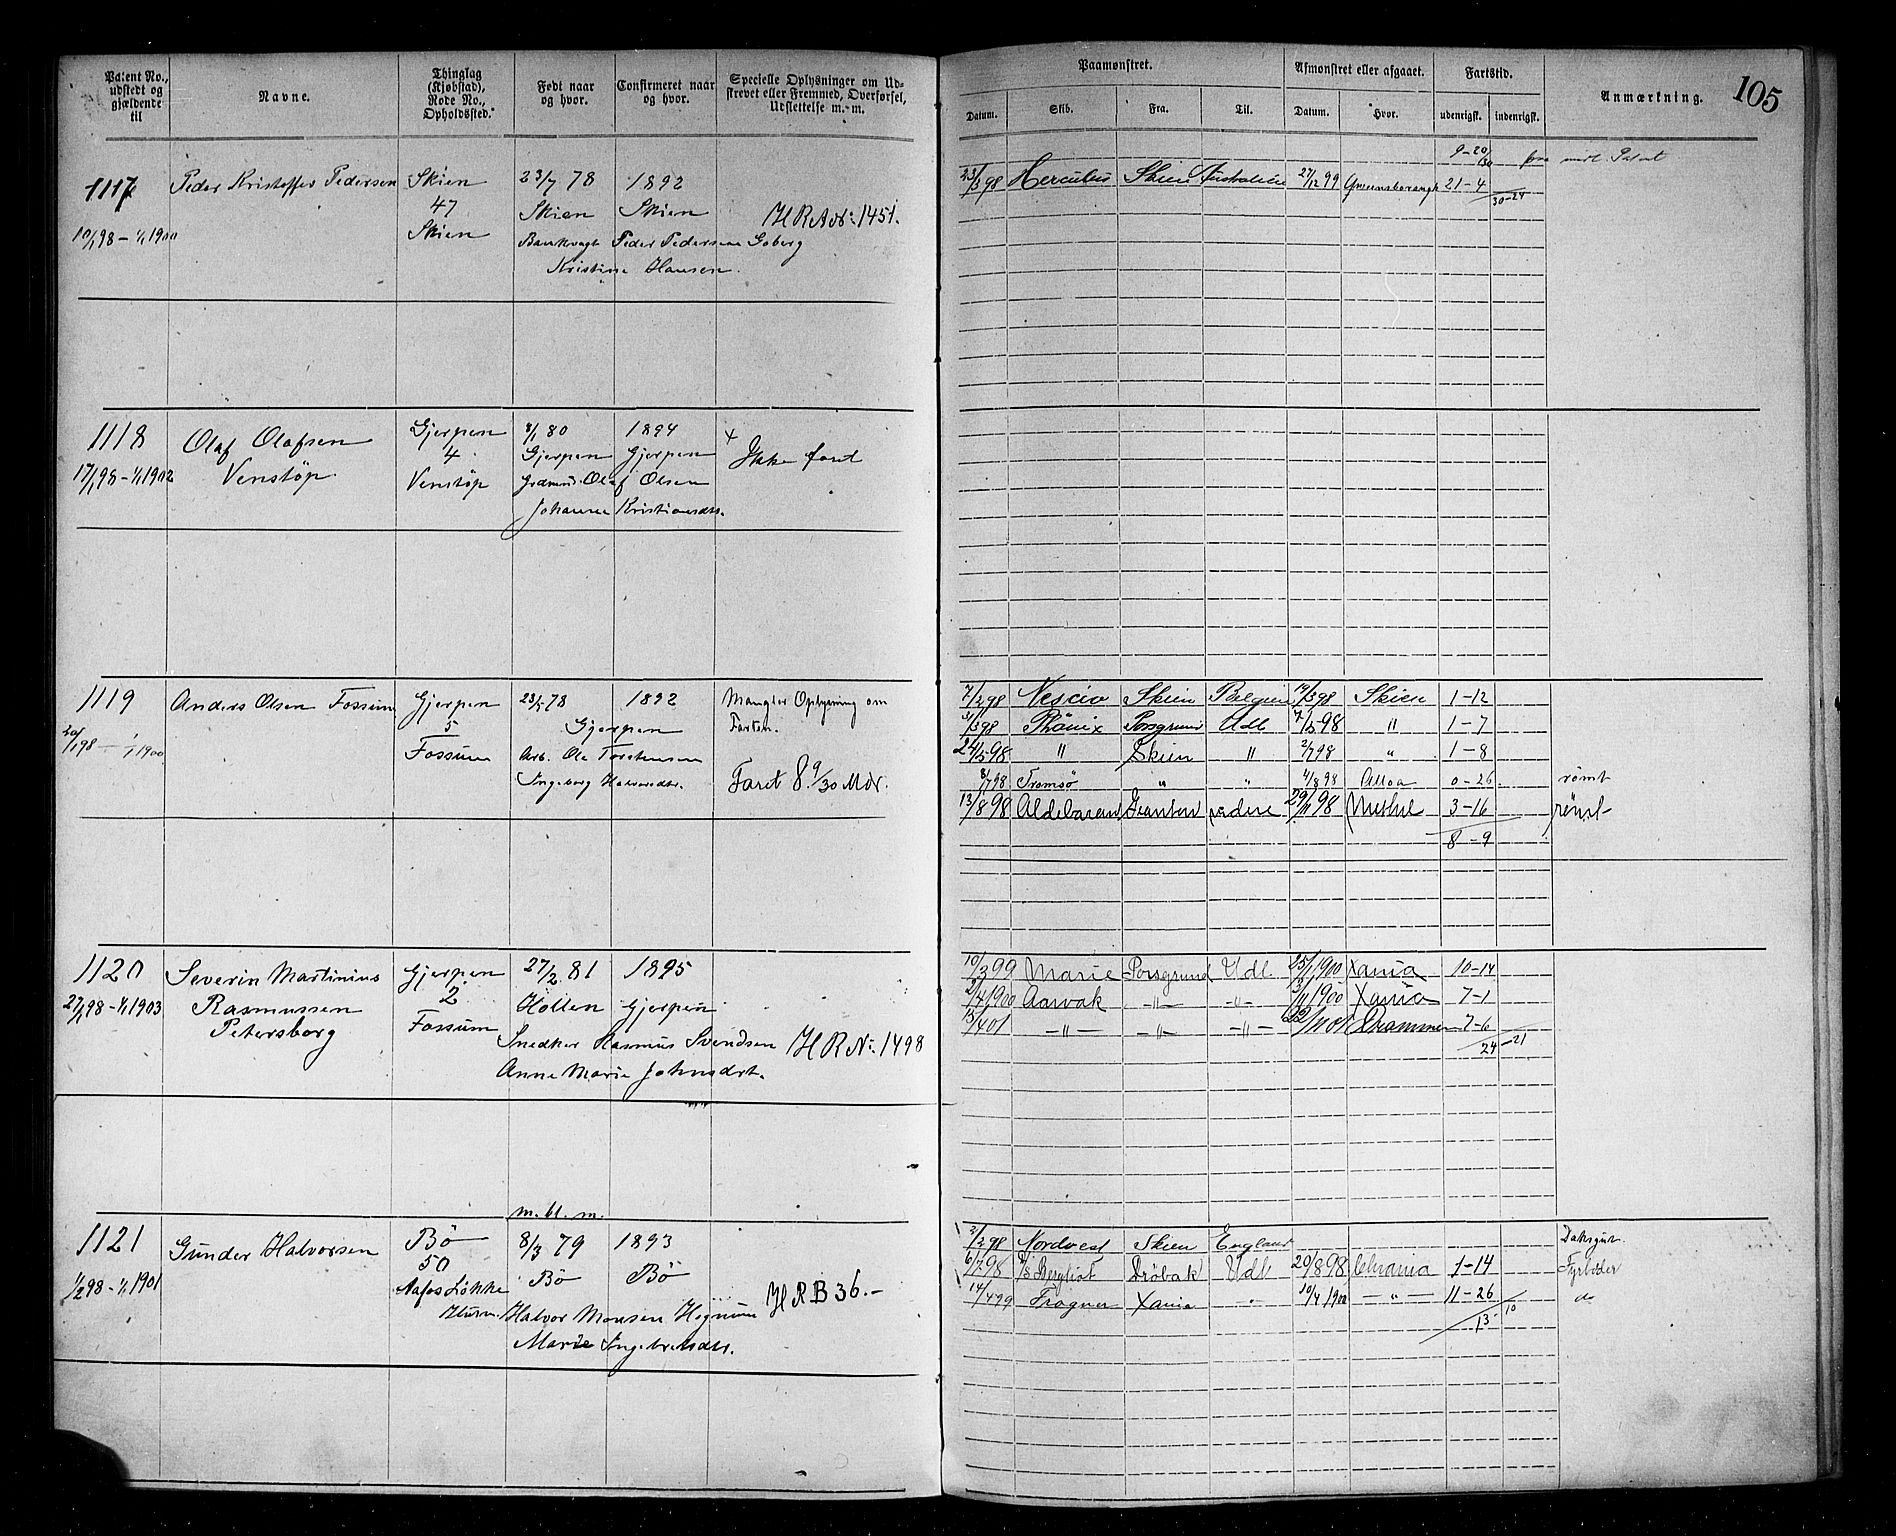 105
Patent No., udstedt og gjældende til
Navne.
Thinglag (Kjøbstad), Rode No., Opholdssted.
Født naar og hvor.
Confirmeret naar og hvor.
Specielle Oplysninger om Udstrevet eller Fremmed, Overførsel, Udslettelse m. m.
Paamønstret.
Afmønstret eller afgaaet.
Fartstid.
Anmærkning.
Datum. Skib. Fra. Til. Datum. Hvor. udenrigsk. indenrigsk.
1117 Peder Kristoffer Pedersen Skien 23/7 78 1892
47 Skien Skien H R A No: 1451.
10/1 98 – 1/1 1900 Skien Peder Pedersen Goberg
Kristine Hansen.
9–20/30
23/3 98 Hercules Skien Australien 27/12 99 21–4
30–24
1118 Olaf Olafsen Gjerpen 8/1 80 1894 x
17/1 98 – 1/1 1902 Venstøp 4 Gjerpen Gjerpen Ikke faret
Venstøp Olaf Olsen
Johanne Kristiansdtr.
1119 Anders Olsen Fossum Gjerpen 23/5 78 1892 Mangler Oplysning om
5 Gjerpen Farten.
20/1 98 – 1/1 1900 Fossum Arb. Ole Torstensen
Ingeborg Halvorsdtr. Faret 8 9/30 Mdr.
7/2 98 Nescio Skien Belgien 19/3 98 Skien 1–12
31/3 98 Phönix Porsgrund Udl 7/5 98 " 1–7
24/5 98 " Skien " 2/7 98 " 1–8
8/7 98 Tromsø " " 4/8 98 Alloa 0–26 rømt
13/8 98 Aldebaran Granton 29/11 98 3–16 rømt
8–9
1120 Severin Martinius Gjerpen 27/2 81 1895
27/1 98 – 1/1 1903 Rasmussen 2 Holten Gjerpen
Petersborg Fossum Snedker Rasmus Svendsen H R No: 1498
Anne Marie Johnsdrt.
10/3 99 Marie Porsgrund Udl. 25/1 1900 Xania 10–14
2/4 1900 Aarvak –"– –"– 3/11 1900 Xania 7–1
15/4 01 –"– –"– –"– 22/11 01 Drammen 7–6
24–21
m. bl. m.
1121 Gunder Halvorsen Bö 8/3 79 1893
50 Bö Bö
1/2 98 – 1/1 1901 H R B 36.–
Halvor Monsen
Marie Ingebretsdtr.
2/2 98 Nordvest Skien England Daksgut.
6/3 98 Bergliot Drøbak Udl 20/8 98 Chrania 1–14 Fyrbøder
14/4 99 Frogner Xania " 10/4 1900 –"– 11–26 do
13 10